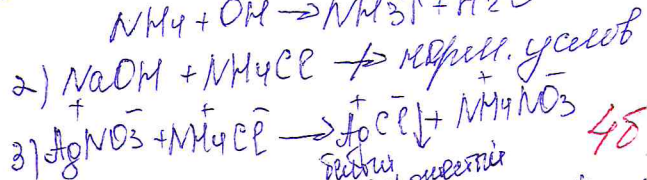 NH4 + OH → NH3↑ + H2O
2) NaOH + NH4Cl ↛ норм. услов
3) AgNO3 + NH4Cl → AgCl↓ + NH4NO3 4б
белый